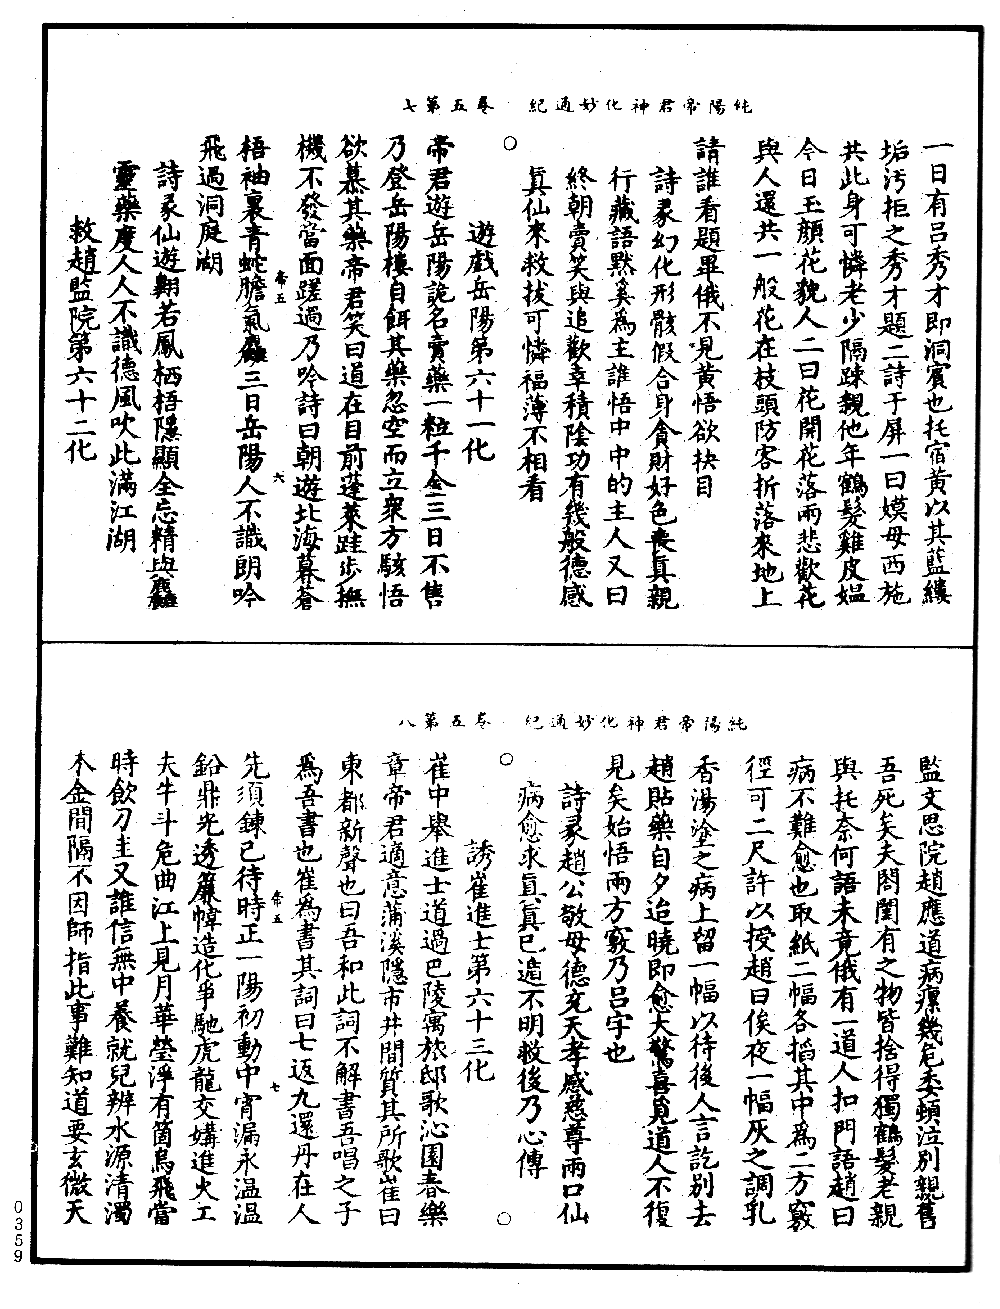 純陽帝君神化妙通紀　卷五第七
一日有呂秀才即洞賓也托宿黃以其藍縷
垢汚拒之秀才題二詩于屏一曰嫫母西施
共此身可憐老少隔踈親他年鶴髮雞皮媪
今日玉顏花貌人二曰花開花落兩悲歡花
與人還共一般花在枝頭防客折落來地上
請誰看題畢俄不見黃悟欲抉目
詩彖幻化形骸假合身貪財好色喪真親
行藏語默奚為主誰悟中中的主人又曰
終朝賣笑與追歡幸積陰功有幾般德感
真仙來救拔可憐福薄不相看
遊戲岳陽第六十一化
帝君遊岳陽詭名賣藥一粒千金三日不售
乃登岳陽樓自餌其藥忽空而立衆方駭悟
欲慕其藥帝君笑曰道在目前蓬萊跬步撫
機不發當面蹉過乃吟詩曰朝遊北海暮蒼
帝五　六
梧袖裏青蛇膽氣麤三日岳陽人不識朗吟
飛過洞庭湖
詩彖仙遊翺若鳳栖梧隱顯全忘精與麤
靈藥度人人不識德風吹此滿江湖
救趙監院第六十二化
純陽帝君神化妙通紀　卷五第八
監文思院趙應道病瘰幾危委頓泣別親舊
吾死矣夫閤閨有之物皆捨得獨鶴髮老親
與托奈何語未竟俄有一道人扣門語趙曰
病不難愈也取紙二幅各搯其中為二方竅
徑可二尺許以授趙曰俟夜一幅灰之調乳
香湯塗之病上留一幅以待後人言訖別去
趙貼藥自夕迨曉即愈大驚喜覓道人不復
見矣始悟兩方竅乃呂字也
詩彖趙公敬母德充天孝感慈尊兩口仙
病愈求真真已遁不明救後乃心傳
誘崔進士第六十三化
崔中舉進士道過巴陵寓旅邸歌沁園春樂
章帝君適意蒲溪隱市井間質其所歌崔曰
東都新聲也曰吾和此詞不解書吾唱之子
為吾書也崔為書其詞曰七返九還丹在人
帝五　七
先須鍊己待時正一陽初動中宵漏永溫溫
鉛鼎光透簾幃造化爭馳虎龍交媾進火工
夫牛斗危曲江上見月華瑩淨有箇烏飛當
時飲刀圭又誰信無中養就兒辨水源清濁
木金間隔不因師指此事難知道要玄微天
0359